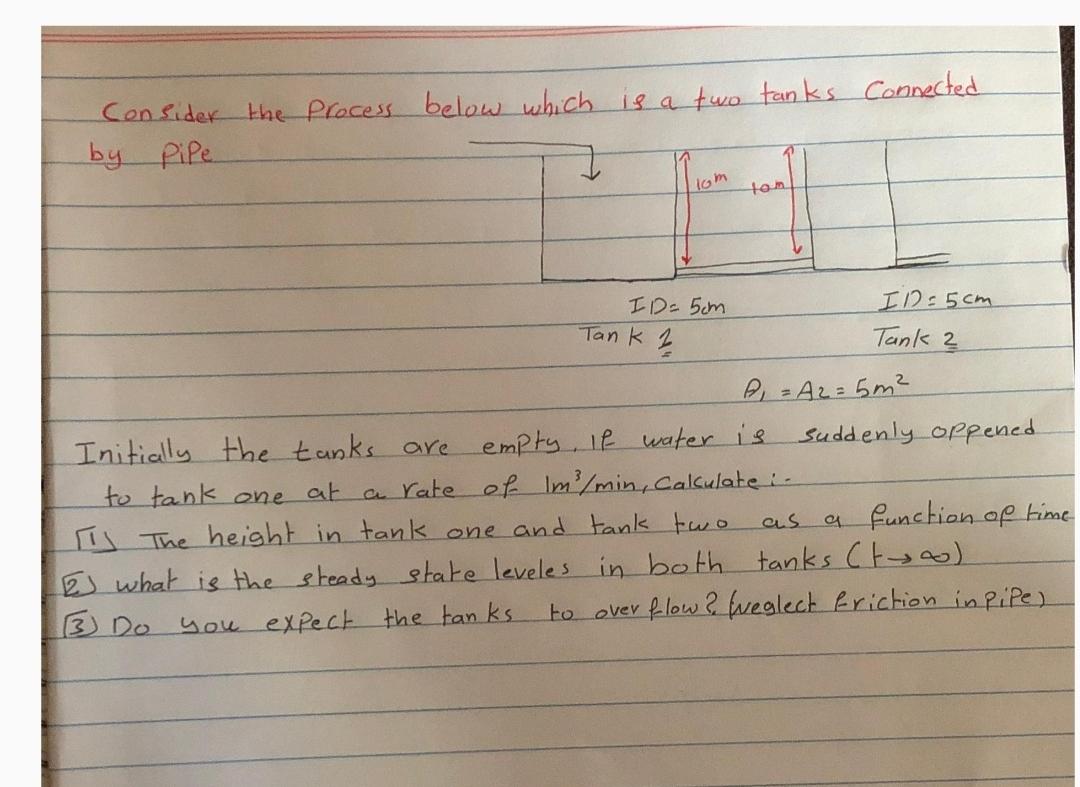 Consider the Process below which is a two tanks Connected
by PiPe
10m 10m
ID= 5cm ID= 5cm
Tank 1 Tank 2
A1 = A2 = 5m²
Initially the tanks are empty. If water is suddenly oppened
to tank one at a rate of 1m³/min, Calculate :-
(1) The height in tank one and tank two as a function of time
(2) what is the steady state leveles in both tanks (t→∞)
(3) Do you expect the tanks to over flow? (neglect friction in pipe)